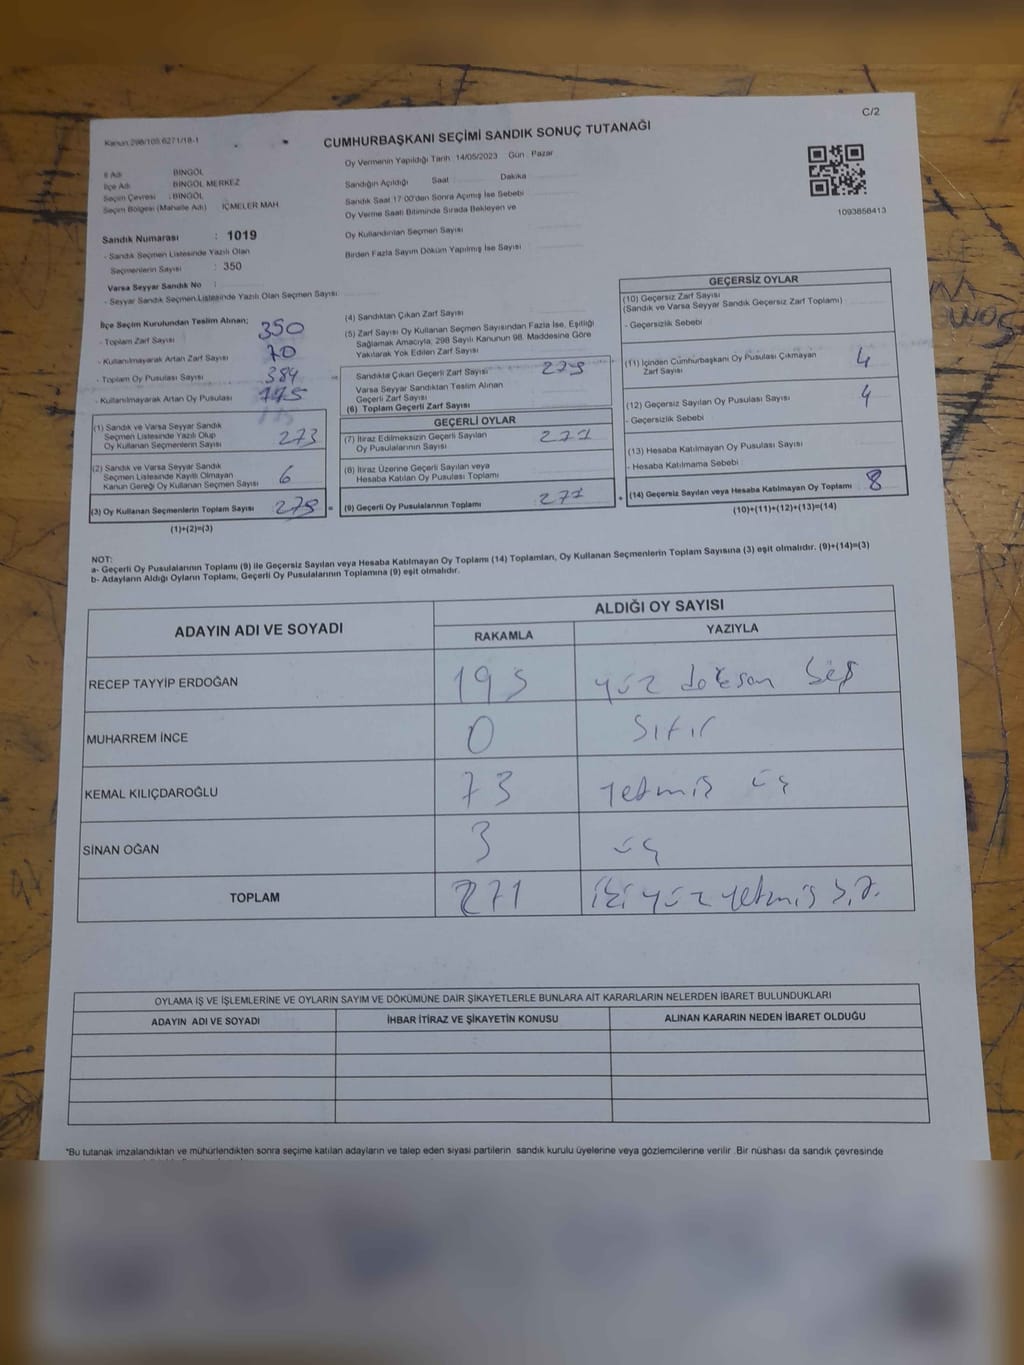 C/2
Kanun:298/105,6271/18-1
CUMHURBAŞKANI SEÇİMİ SANDIK SONUÇ TUTANAĞI
Oy Vermenin Yapıldığı Tarih 14/05/2023 Gün : Pazar
İl Adı : BİNGÖL
İlçe Adı : BİNGÖL MERKEZ
Seçim Çevresi : BİNGÖL
Seçim Bölgesi (Mahalle Adı) : İÇMELER MAH.
Sandığın Açıldığı Saat Dakika
Sandık Saat 17:00'den Sonra Açılmış İse Sebebi
Oy Verme Saati Bitiminde Sırada Bekleyen ve
Oy Kullandırılan Seçmen Sayısı
Birden Fazla Sayım Döküm Yapılmış İse Sayısı
1093858413
Sandık Numarası : 1019
- Sandık Seçmen Listesinde Yazılı Olan
Seçmenlerin Sayısı : 350
Varsa Seyyar Sandık No :
- Seyyar Sandık Seçmen Listesinde Yazılı Olan Seçmen Sayısı:
İlçe Seçim Kurulundan Teslim Alınan;
- Toplam Zarf Sayısı 350
- Kullanılmayarak Artan Zarf Sayısı 70
- Toplam Oy Pusulası Sayısı 384
- Kullanılmayarak Artan Oy Pusulası
(1) Sandık ve Varsa Seyyar Sandık
Seçmen Listesinde Yazılı Olup
Oy Kullanan Seçmenlerin Sayısı 273
(2) Sandık ve Varsa Seyyar Sandık
Seçmen Listesinde Kayıtlı Olmayan
Kanun Gereği Oy Kullanan Seçmen Sayısı 6
(3) Oy Kullanan Seçmenlerin Toplam Sayısı 279 =
(1)+(2)=(3)
(4) Sandıktan Çıkan Zarf Sayısı
(5) Zarf Sayısı Oy Kullanan Seçmen Sayısından Fazla İse, Eşitliği
Sağlamak Amacıyla, 298 Sayılı Kanunun 98. Maddesine Göre
Yakılarak Yok Edilen Zarf Sayısı
Sandıkta Çıkan Geçerli Zarf Sayısı 279
Varsa Seyyar Sandıktan Teslim Alınan
Geçerli Zarf Sayısı
(6) Toplam Geçerli Zarf Sayısı
GEÇERLİ OYLAR
(7) İtiraz Edilmeksizin Geçerli Sayılan
Oy Pusulalarının Sayısı 271
(8) İtiraz Üzerine Geçerli Sayılan veya
Hesaba Katılan Oy Pusulası Toplamı
(9) Geçerli Oy Pusulalarının Toplamı 271 +
GEÇERSİZ OYLAR
(10) Geçersiz Zarf Sayısı
(Sandık ve Varsa Seyyar Sandık Geçersiz Zarf Toplamı)
- Geçersizlik Sebebi
(11) İçinden Cumhurbaşkanı Oy Pusulası Çıkmayan
Zarf Sayısı 4
(12) Geçersiz Sayılan Oy Pusulası Sayısı 4
- Geçersizlik Sebebi
(13) Hesaba Katılmayan Oy Pusulası Sayısı
- Hesaba Katılmama Sebebi
(14) Geçersiz Sayılan veya Hesaba Katılmayan Oy Toplamı 8
(10)+(11)+(12)+(13)=(14)
NOT:
a- Geçerli Oy Pusulalarının Toplamı (9) ile Geçersiz Sayılan veya Hesaba Katılmayan Oy Toplamı (14) Toplamları, Oy Kullanan Seçmenlerin Toplam Sayısına (3) eşit olmalıdır. (9)+(14)=(3)
b- Adayların Aldığı Oyların Toplamı, Geçerli Oy Pusulalarının Toplamına (9) eşit olmalıdır.
ADAYIN ADI VE SOYADI
ALDIĞI OY SAYISI
RAKAMLA YAZIYLA
RECEP TAYYİP ERDOĞAN 195 yüz doksan beş
MUHARREM İNCE 0 sıfır
KEMAL KILIÇDAROĞLU 73 yetmiş üç
SİNAN OĞAN 3 üç
TOPLAM 271 iki yüz yetmiş bir
OYLAMA İŞ VE İŞLEMLERİNE VE OYLARIN SAYIM VE DÖKÜMÜNE DAİR ŞİKAYETLERLE BUNLARA AİT KARARLARIN NELERDEN İBARET BULUNDUKLARI
ADAYIN ADI VE SOYADI İHBAR İTİRAZ VE ŞİKAYETİN KONUSU ALINAN KARARIN NEDEN İBARET OLDUĞU
*Bu tutanak imzalandıktan ve mühürlendikten sonra seçime katılan adayların ve talep eden siyasi partilerin sandık kurulu üyelerine veya gözlemcilerine verilir. Bir nüshası da sandık çevresinde